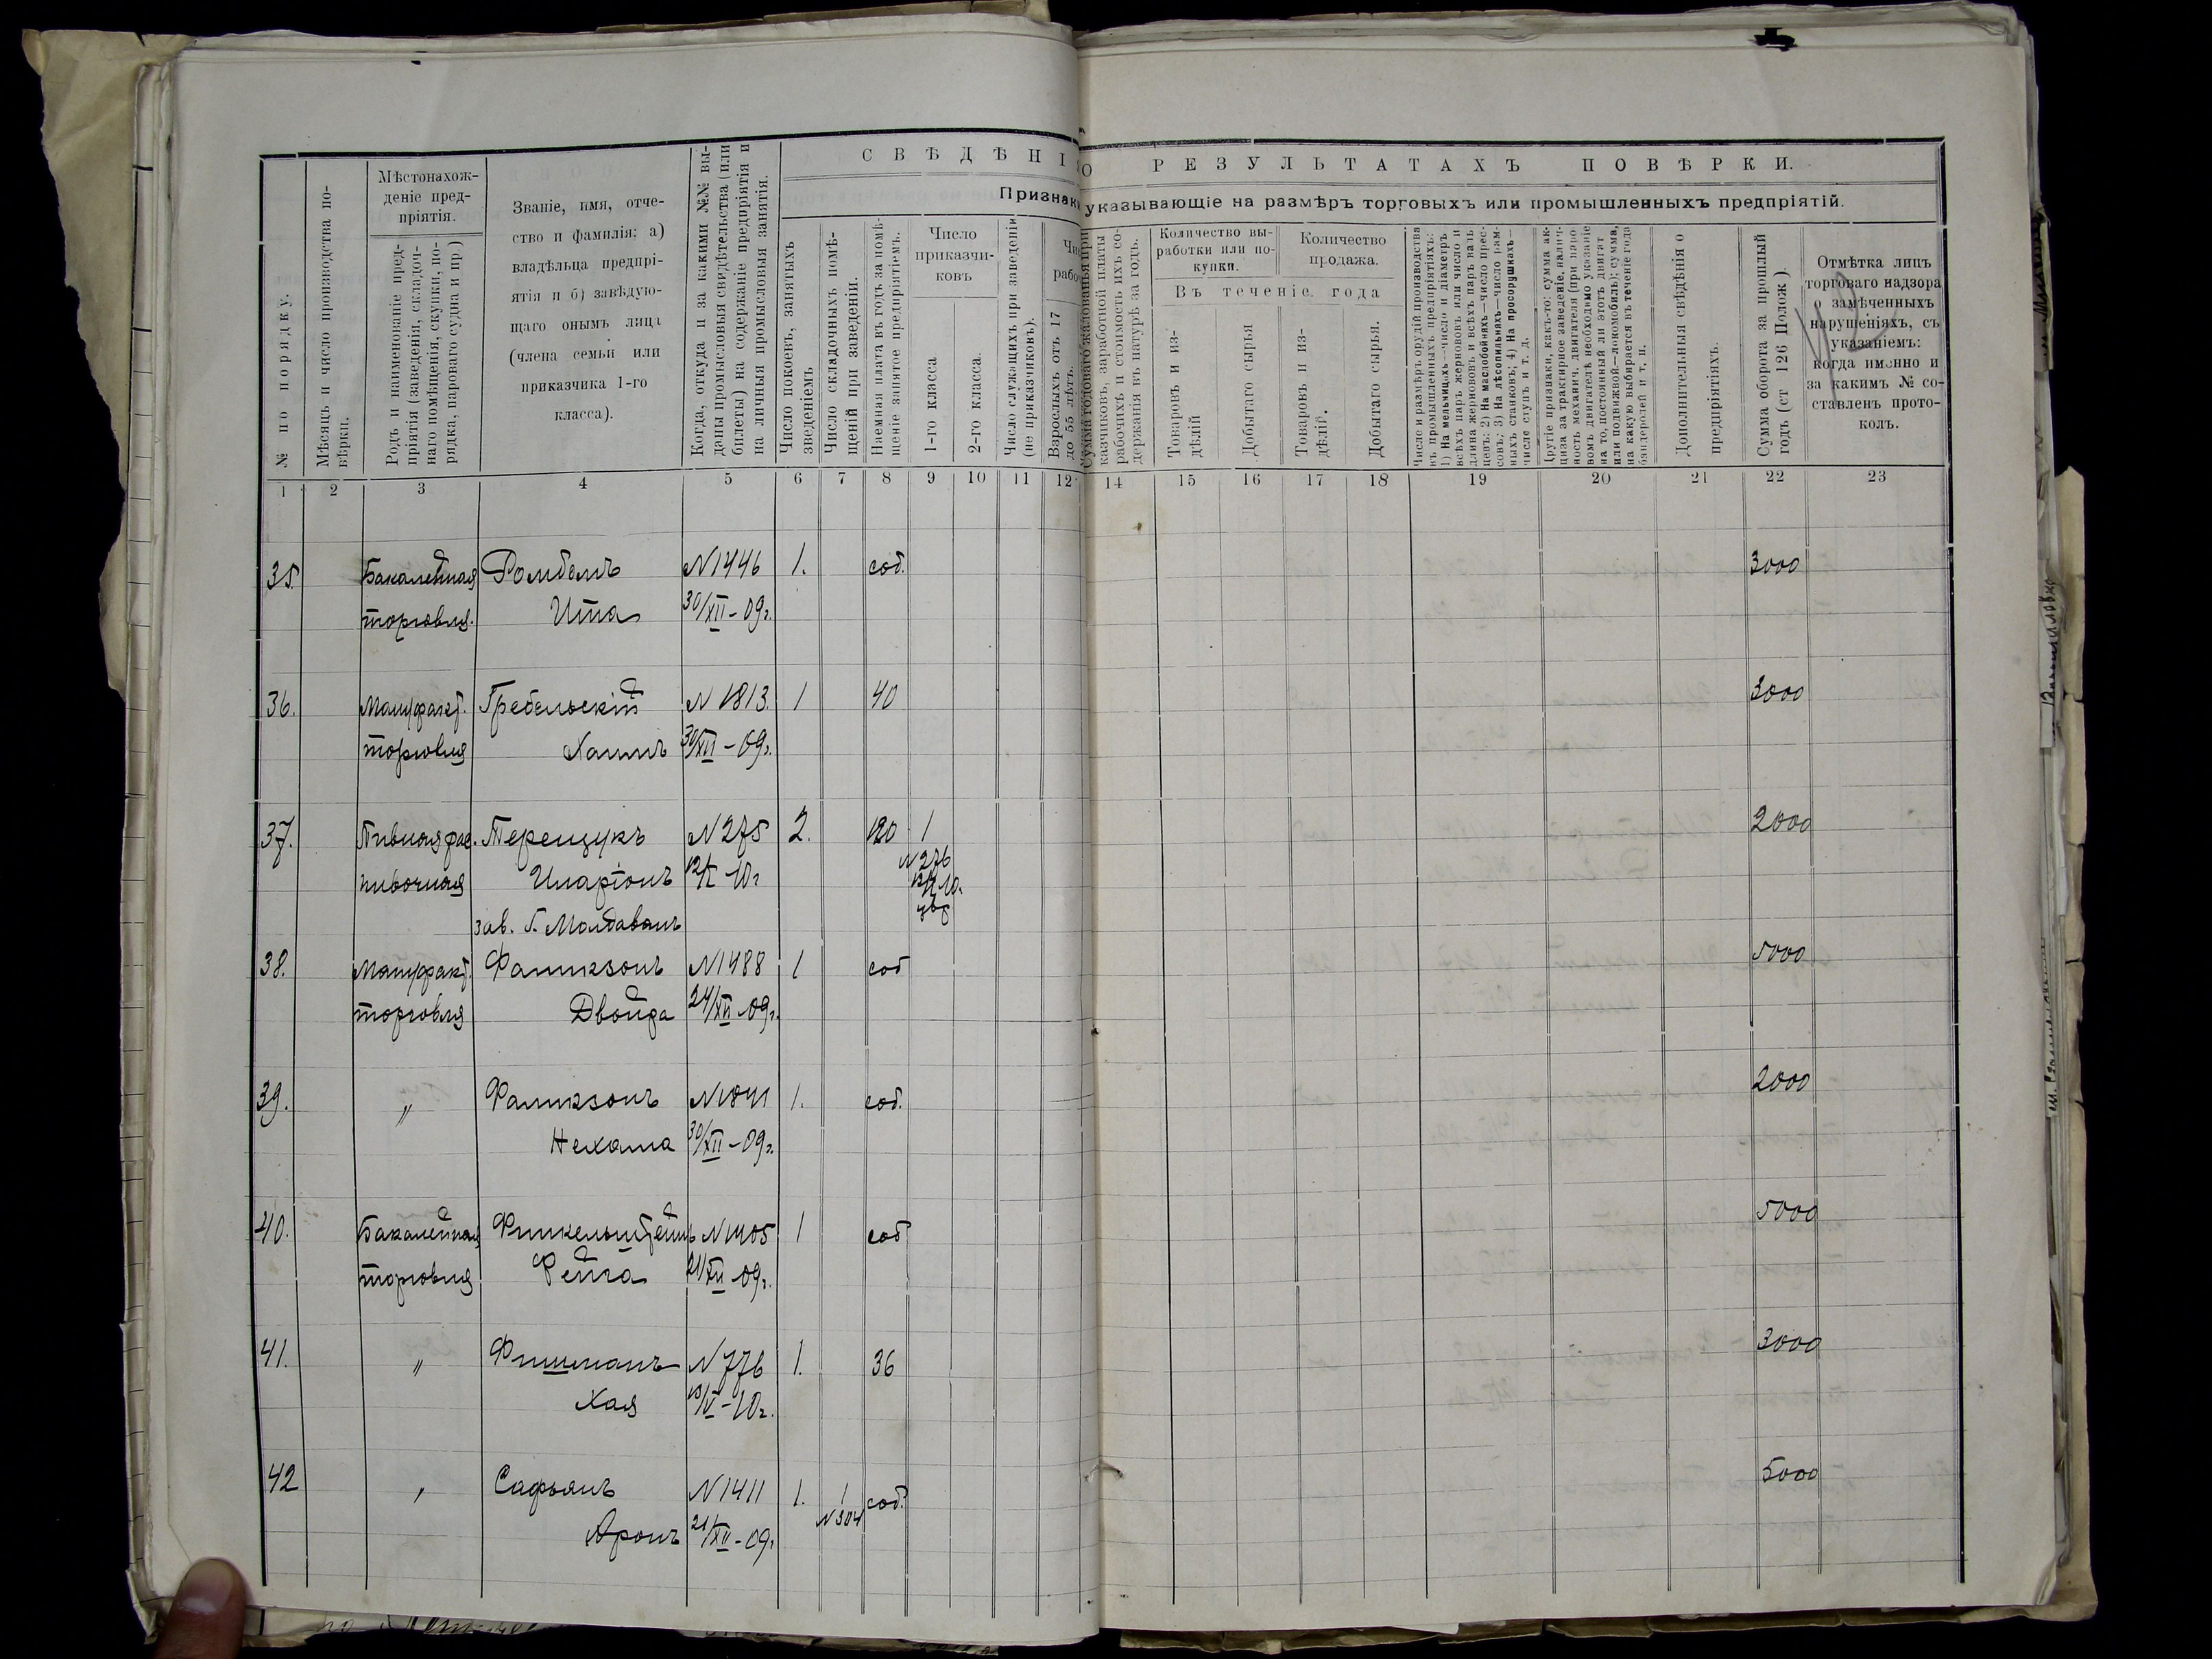 СВѢДѢНІ О РЕЗУЛЬТАТАХЪ ПОВѢРКИ.
Признаки указывающіе на размѣръ торговыхъ или промышленныхъ предпріятій.
№ по порядку.
Мѣсяцъ и число производства по-
вѣрки.
Мѣстонахож-
деніе пред-
пріятія.
Родъ и наименованіе пред-
пріятія (заведенія, складоч-
наго помѣщенія, скупки, по-
рядка, парового судна и пр)
Званіе, имя, отче-
ство и фамилія: а)
владѣльца предпрі-
ятія и б) завѣдую-
щаго онымъ лица
(члена семьи или
приказчика 1-го
класса).
Когда, откуда и за какими №№ вы-
даны промысловыя свидѣтельства (или
билеты) на содержаніе предпріятія и
на личныя промысловыя занятія.
Число покоевъ, занятыхъ
зведеніемъ
Число складочныхъ помѣ-
щеній при заведеніи.
Наемная плата въ годъ за помѣ-
щеніе занятое предпріятіемъ.
Число
приказчи-
ковъ
1-го класса
2-го класса.
Число служащихъ при заведеніи
(не приказчиковъ).
Взрослыхъ отъ 17
до 55 лѣтъ.
Сумма годоваго жалованья при-
казчиковъ, заработной платы
рабочихъ и стоимость ихъ со-
держанія въ натурѣ за годъ.
Количество вы-
работки или по-
купки.
Количество
продажа.
Въ теченіе года
Товаровъ и из-
дѣлій
Добытаго сырья
Товаровъ и из-
дѣлій.
Добытаго сырья.
Число и размѣръ орудій производства
въ промышленныхъ предпріятіяхъ:
1) На мельницахъ—число и діаметръ
всѣхъ паръ жернововъ или число и
длина жернововъ и всѣхъ паръ валь-
цевъ: 2) На маслобойняхъ—число прес-
совъ; 3) На лѣсопильняхъ—число рам-
ныхъ станковъ; 4) На просорушкахъ—
число ступъ и т. д.
Другіе признаки, какъ-то: сумма ак-
циза за трактирное заведеніе, налич-
ность механич. двигателя (при паро-
вомъ двигателѣ необходимо указаніе
на то, постоянный ли этотъ двигат
или подвижной—локомобиль); сумма,
на какую выбирается въ теченіе года
бандеролей и т. п.
Дополнительныя свѣдѣнія о
предпріятіяхъ.
Сумма оборота за прошлый
годъ (ст 126 Полож)
Отмѣтка лицъ
торговаго надзора
о замѣченныхъ
нарушеніяхъ, съ
указаніемъ:
когда именно и
за какимъ № со-
ставленъ прото-
колъ.
1 2 3 4 5 6 7 8 9 10 11 12 14 15 16 17 18 19 20 21 22 23
35. Бакалейная Ромбелъ N 1446 1. соб. 3000
торговля. Ита 30/XII-09г.
36. Мануфакт. Гребельскій N 1813. 1 40 3000
торговля Хаимъ 30/XII-09г.
37. Пивная рас. Терещукъ N 275 2. 120 1 2000
пивочная Иларіонъ 12/I-10г N 276
зав. Г. Молдаванъ
38. Мануфакт. Фаликзонъ N 1488 1 соб 5000
торговля Двойра 24/XII-09г.
39. „ Фаликзонъ N 1841 1. соб. 2000
Нехама 30/XII-09г.
40. Бакалейная Финкельштейнъ N 1405 1 соб 5000
торговля Фейга 21/XII-09г.
41. „ Фишманъ N 776 1. 36 3000
Хая 13/IV-10г.
42 „ Сафьянъ N 1411 1. 1 соб. 5000
N 304
Аронъ 21/XII-09г